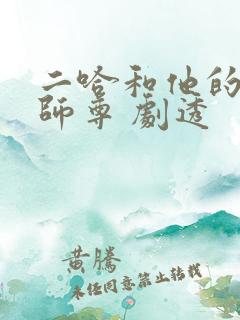 二哈和他的
師尊 劇透
黃騰
未经同意禁止转载